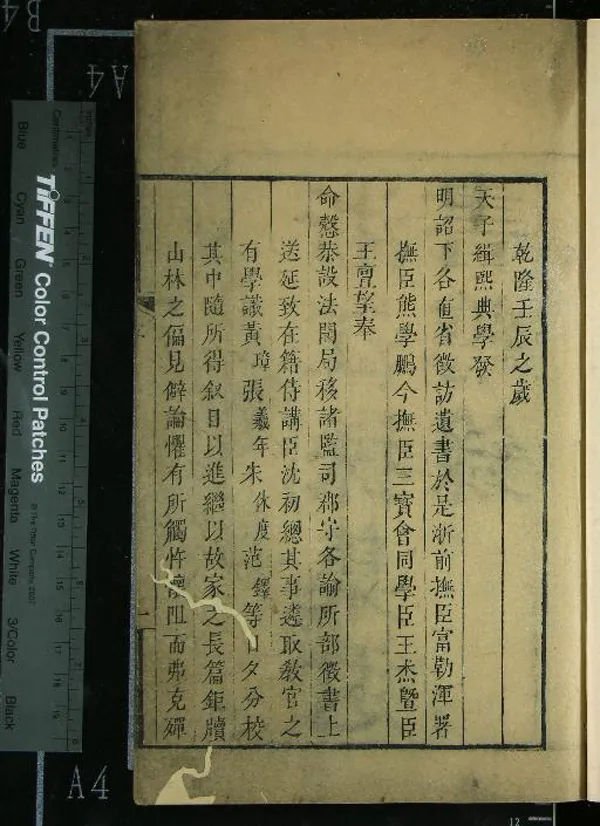 乾隆壬辰之歲
天子緝熙典學發
明詔下各直省徵訪遺書於是浙前撫臣富勒渾署
撫臣熊學鵬今撫臣三寶會同學臣王杰暨臣
王亶望奉
命慤恭設法開局移諸監司郡守各諭所部徵書上
送延致在籍侍講臣沈初總其事遴取教官之
有學識黃璋張羲年朱休度范鏴等日夕分校
其中隨所得叙目以進繼以故家之長篇鉅牘
山林之偏見僻論懼有所觸忤懷阻而弗克殫
A4
A4
B4
TIFFEN Color Control Patches
© The Tiffen Company, 2007
Centimetres
Inches
Blue
Cyan
Green
Yellow
Red
Magenta
White
3/Color
Black
12